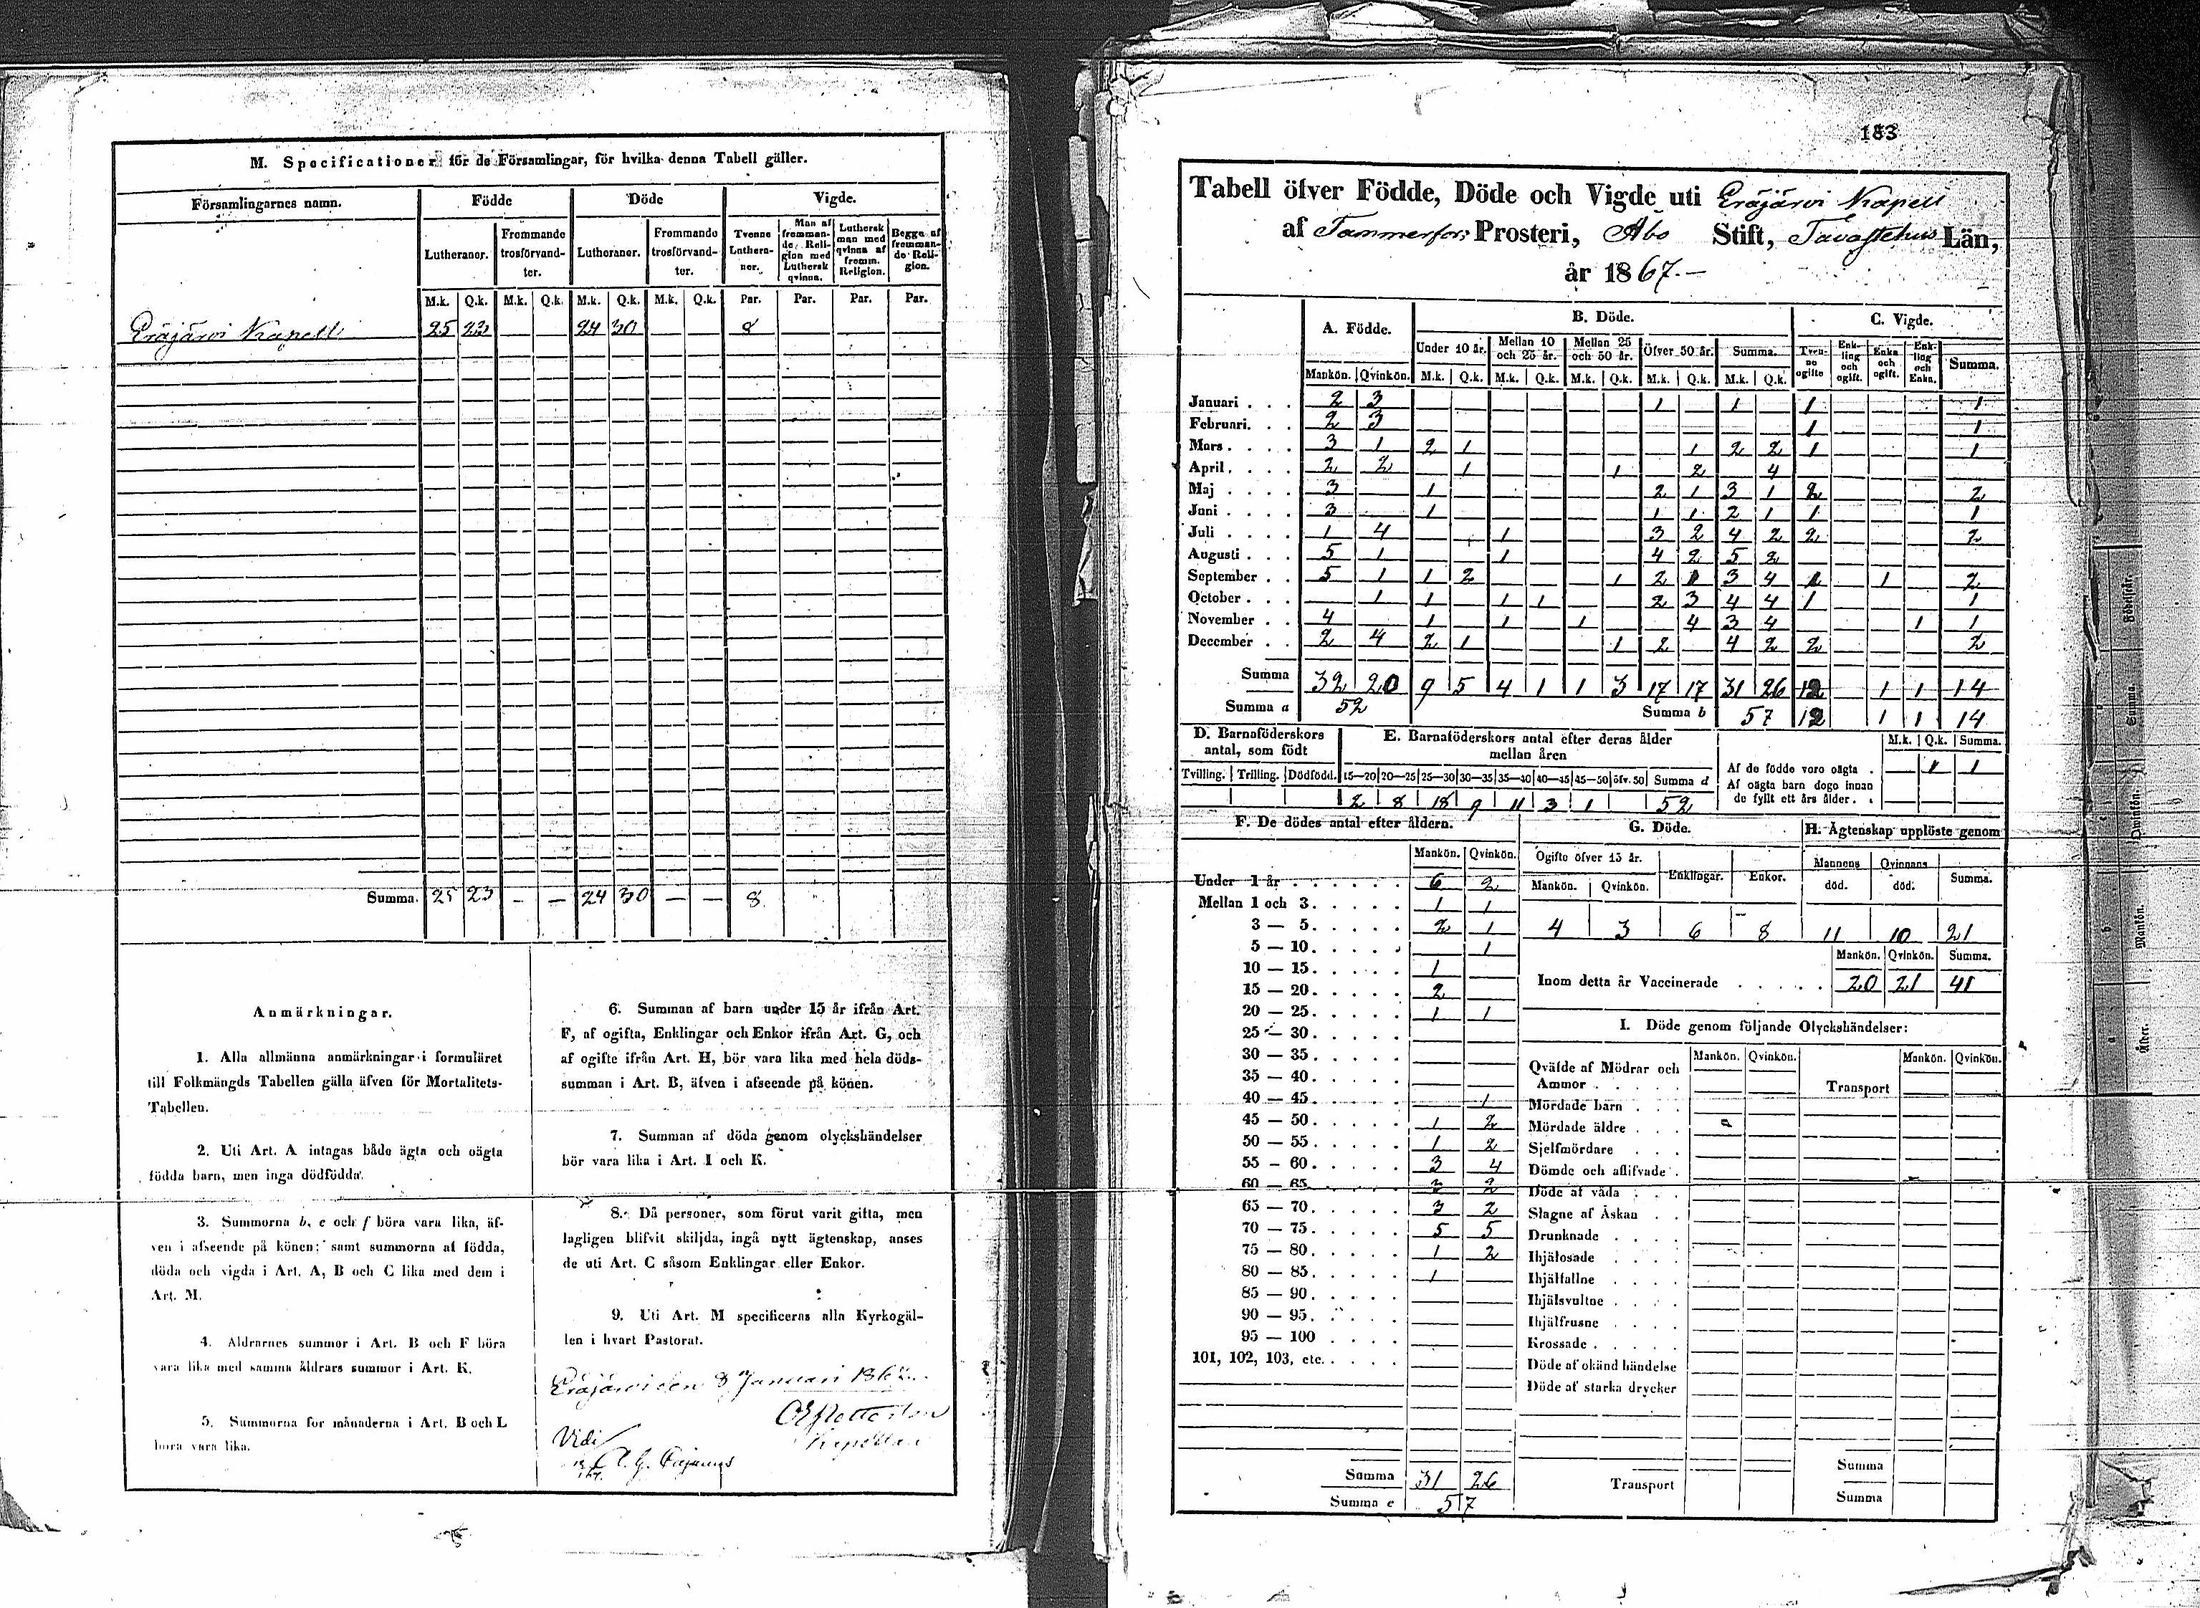 M. Specificationer för de Församlingar, för hvilka denna Tabell gäller.
Församlingarnes namn. Födde Döde Vigde.
Lutheraner. Frommande trosförvandter. Lutheraner. Frommande trosförvandter. Tvenne Lutheraner. Man af fremmande Religion med Luthersk qvinna. Luthersk man med qvinna af fremm. Religion. Begge af fremmande Religion.
M.k. Q.k. M.k. Q.k. M.k. Q.k. M.k. Q.k. Par. Par. Par. Par.
Eräjärvi Kapell 25 23 — — 24 30 — — 8
Summa. 25 23 — — 24 30 — — 8
Anmärkningar.
1. Alla allmänna anmärkningar i formuläret
till Folkmängds Tabellen gälla äfven för Mortalitets-
Tabellen.
2. Uti Art. A intagas både ägta och oägta
födda barn, men inga dödfödda.
3. Summorna b, e och f böra vara lika, äf-
ven i afseende på könen; samt summorna af födda,
döda och vigda i Art. A, B och C lika med dem i
Art. M.
4. Åldrarnes summor i Art. B och F böra
vara lika med samma åldrars summor i Art. K.
5. Summorna för månaderna i Art. B och L
böra vara lika.
6. Summan af barn under 15 år ifrån Art.
F, af ogifta, Enklingar och Enkor ifrån Art. G, och
af ogifte ifrån Art. H, bör vara lika med hela döds-
summan i Art. B, äfven i afseende på könen.
7. Summan af döda genom olyckshändelser
bör vara lika i Art. I och K.
8. Då personer, som förut varit gifta, men
lagligen blifvit skiljda, ingå nytt ägtenskap, anses
de uti Art. C såsom Enklingar eller Enkor.
9. Uti Art. M specificeras alla Kyrkogäl-
len i hvart Pastorat.
Eräjärvi den 8 Januari
Kapellan
Vidi
183
Tabell öfver Födde, Döde och Vigde uti Eräjärvi Kapell
af Tammerfors Prosteri, Åbo Stift, Tavastehus Län,
år 1867.—
A. Födde. B. Döde. C. Vigde.
Under 10 år. Mellan 10 och 25 år. Mellan 25 och 50 år. Öfver 50 år. Summa. Tvenne ogifte Enkling och ogift. Enka och ogift. Enkling och Enka. Summa.
Mankön. Qvinkön. M.k. Q.k. M.k. Q.k. M.k. Q.k. M.k. Q.k. M.k. Q.k.
Januari . . . 2 3 1 1 1 1
Februari. . . 2 3 1 1
Mars . . . . 3 1 2 1 1 2 2 1 1
April . . . . 2 2 1 1 2 4
Maj . . . . 3 1 2 1 3 1 2 2
Juni . . . . 3 1 1 1 2 1 1 1
Juli . . . . 1 4 1 3 2 4 2 2 2
Augusti . . . 5 1 1 4 2 5 2
September . . 5 1 1 2 1 2 1 3 4 1 1 2
October . . . 1 1 1 1 2 3 4 4 1 1
November . . 4 1 1 1 4 3 4 1 1
December . . 2 4 2 1 1 2 4 2 2 2
Summa 32 20 9 5 4 1 1 3 17 17 31 26 12 1 1 14
Summa a 52 Summa b 57 12 1 1 14
D. Barnaföderskors antal, som födt
Tvilling. Trilling. Dödfödd.
E. Barnaföderskors antal efter deras ålder mellan åren
15—20 20—25 25—30 30—35 35—40 40—45 45—50 öfv. 50 Summa d
2 8 18 9 11 3 1 52
M.k. Q.k. Summa.
Af de födde voro oägta . 1 1
Af oägta barn dogo innan
de fyllt ett års ålder. .
F. De dödes antal efter åldern.
Mankön. Qvinkön.
Under 1 år . . . . . . 6 2
Mellan 1 och 3. . . . . 1 1
3 — 5. . . . . 2 1
5 — 10. . . . . 1
10 — 15. . . . . 1
15 — 20. . . . . 2
20 — 25. . . . . 1 1
25 — 30. . . . .
30 — 35. . . . .
35 — 40. . . . .
40 — 45. . . . . 1
45 — 50. . . . . 1 2
50 — 55. . . . . 1 2
55 — 60. . . . . 3 4
60 — 65. . . . . 3 2
65 — 70. . . . . 3 2
70 — 75. . . . . 5 5
75 — 80. . . . . 1 2
80 — 85. . . . . 1
85 — 90. . . . .
90 — 95. . . . .
95 — 100 . . . .
101, 102, 103, etc. . . . .
Summa 31 26
Summa e 57
G. Döde.
Ogifte öfver 15 år. Enklingar. Enkor.
Mankön. Qvinkön.
4 3 6 8
H. Ägtenskap upplöste genom
Mannens död. Qvinnans död. Summa.
11 10 21
Mankön. Qvinkön. Summa.
Inom detta år Vaccinerade . . . . . 20 21 41
I. Döde genom följande Olyckshändelser:
Mankön. Qvinkön. Mankön. Qvinkön.
Qväfde af Mödrar och
Ammor . . . . . Transport
Mördade barn . . .
Mördade äldre . . .
Sjelfmördare . . .
Dömde och aflifvade .
Döde af våda . . .
Slagne af Åskan . .
Drunknade . . . .
Ihjälosade . . . .
Ihjälfallne . . . .
Ihjälsvultne . . . .
Ihjälfrusne . . . .
Krossade . . . . .
Döde af okänd händelse
Döde af starka drycker
Summa
Transport
Summa